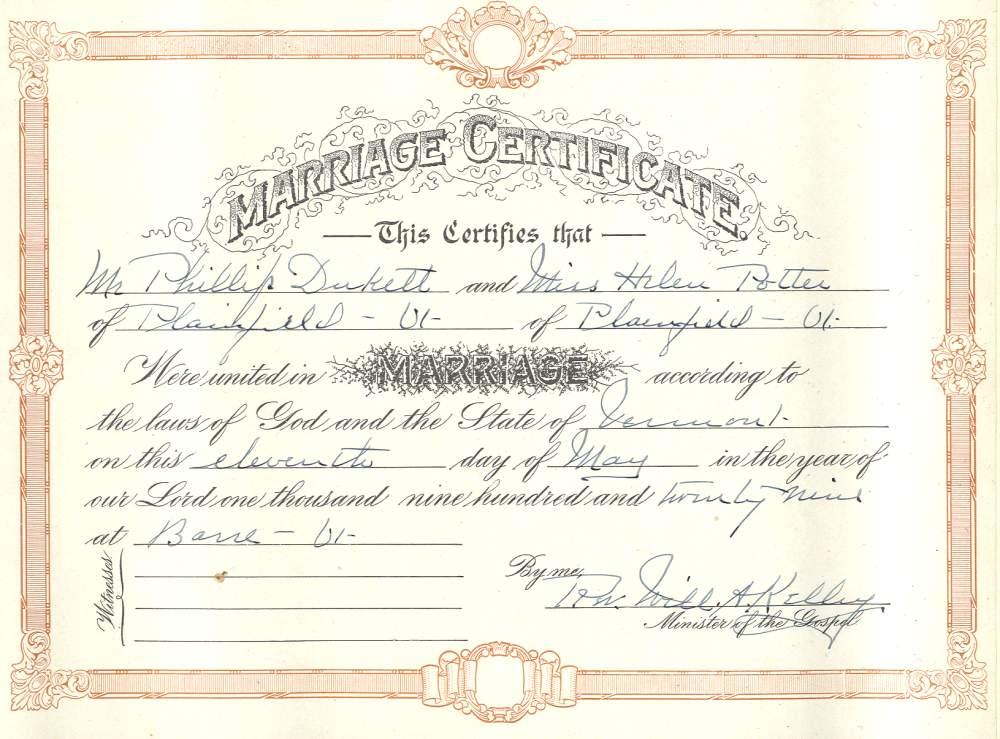 MARRIAGE CERTIFICATE.
This Certifies that
Mr Phillip Dukett and Miss Helen Potter
of Plainfield - Vt- of Plainfield - Vt-
Were united in MARRIAGE according to
the laws of God and the State of Vermont-
on this eleventh day of May in the year of
our Lord one thousand nine hundred and twenty nine
at Barre - Vt-
Witnesses
By me,
Rev. Will. A. Kelley
Minister of the Gospel